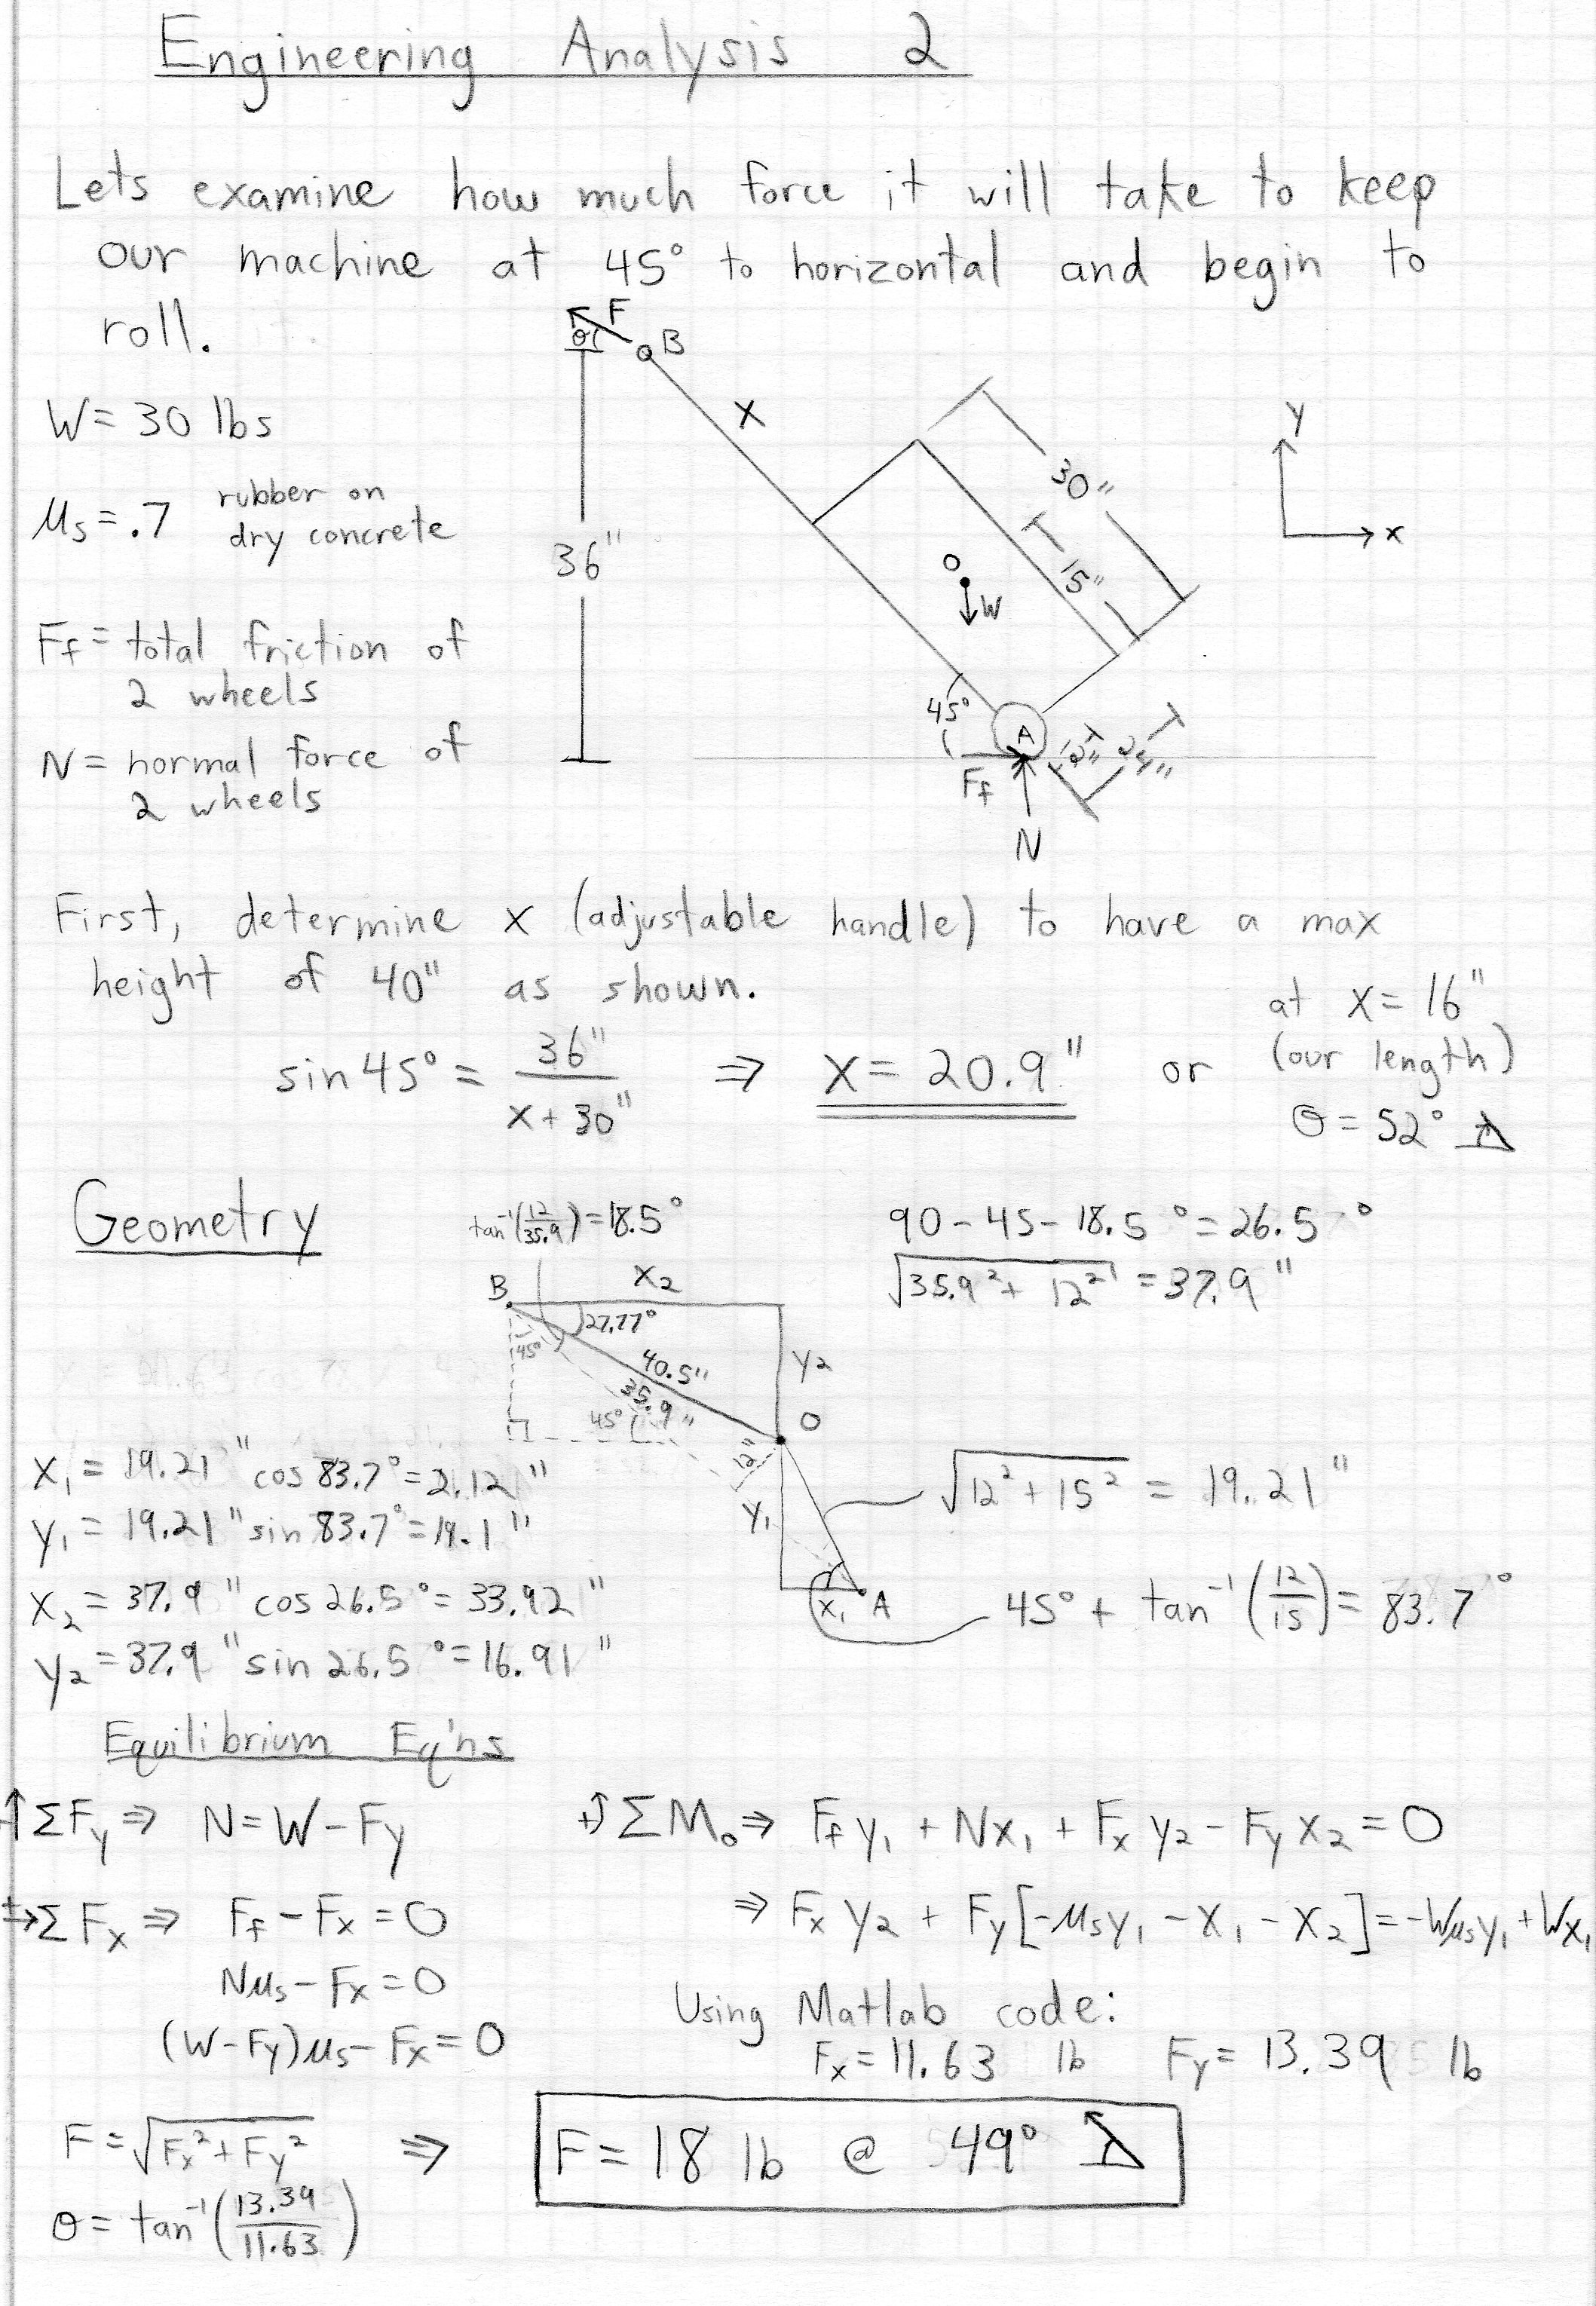 Engineering Analysis 2
Lets examine how much force it will take to keep
our machine at 45° to horizontal and begin to
roll.
F
θ
B
W = 30 lbs
X
Y
x
30"
μs = .7 rubber on
dry concrete
36"
15"
O
W
Ff = total friction of
2 wheels
45°
A
12"
24"
Ff
N = normal force of
2 wheels
N
First, determine x (adjustable handle) to have a max
height of 40" as shown.
sin 45° = 36" / (x + 30") ⇒ X = 20.9" or
at X = 16"
(our length)
θ = 52°
Geometry
tan⁻¹(12/35.9) = 18.5°
90 - 45 - 18.5° = 26.5°
√(35.9² + 12²) = 37.9"
B
X2
27.77°
45°
40.5"
35.9"
Y2
45°
O
12"
X1 = 19.21" cos 83.7° = 2.12"
Y1 = 19.21" sin 83.7° = 19.1"
X2 = 37.9" cos 26.5° = 33.92"
Y2 = 37.9" sin 26.5° = 16.91"
Y1
√(12² + 15²) = 19.21"
X1
A
45° + tan⁻¹(12/15) = 83.7°
Equilibrium Eq'ns
↑ΣFy ⇒ N = W - Fy
+ΣMo ⇒ Ff y1 + Nx1 + Fx y2 - Fy x2 = 0
+→ΣFx ⇒ Ff - Fx = 0
⇒ Fx y2 + Fy[-μs y1 - x1 - x2] = -Wμs y1 + Wx1
Nμs - Fx = 0
(W - Fy)μs - Fx = 0
Using Matlab code:
Fx = 11.63 lb Fy = 13.39 lb
F = √(Fx² + Fy²) ⇒ F = 18 lb @ 49°
θ = tan⁻¹(13.39/11.63)